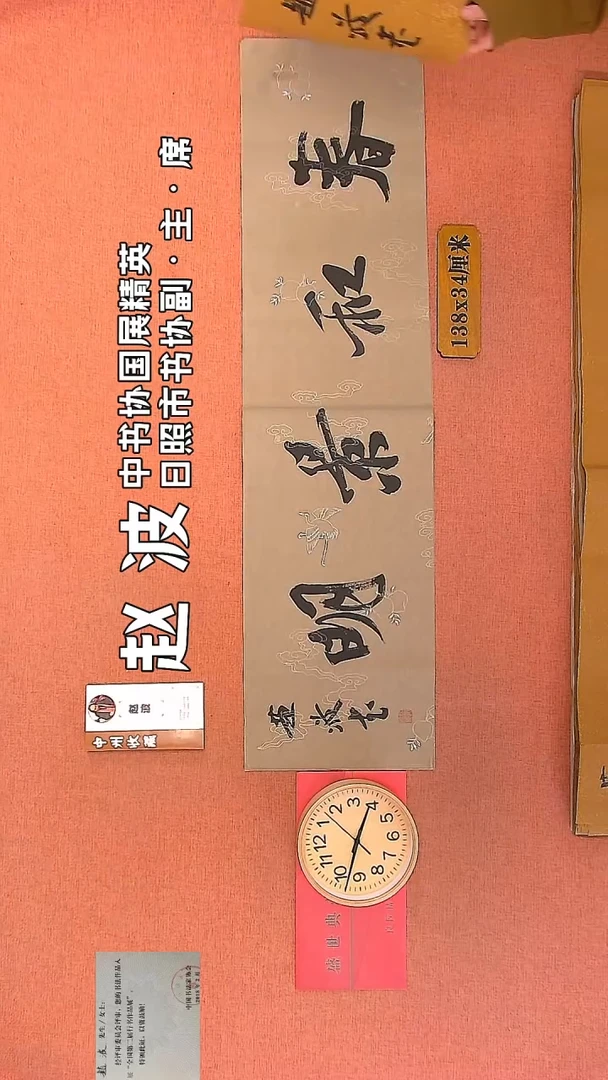 赵波
中书协国展精英
日照市书协副·主·席
春和景明
趙波书
138x34厘米
赵波
中州收藏
1 2 3 4 5 6 7 8 9 10 11 12
盛世典
先生/女士:
经评审委员会评审，您的书法作品入
展“全国第二届行书作品展”，
特颁此证，以资鼓励！
中国书法家协会